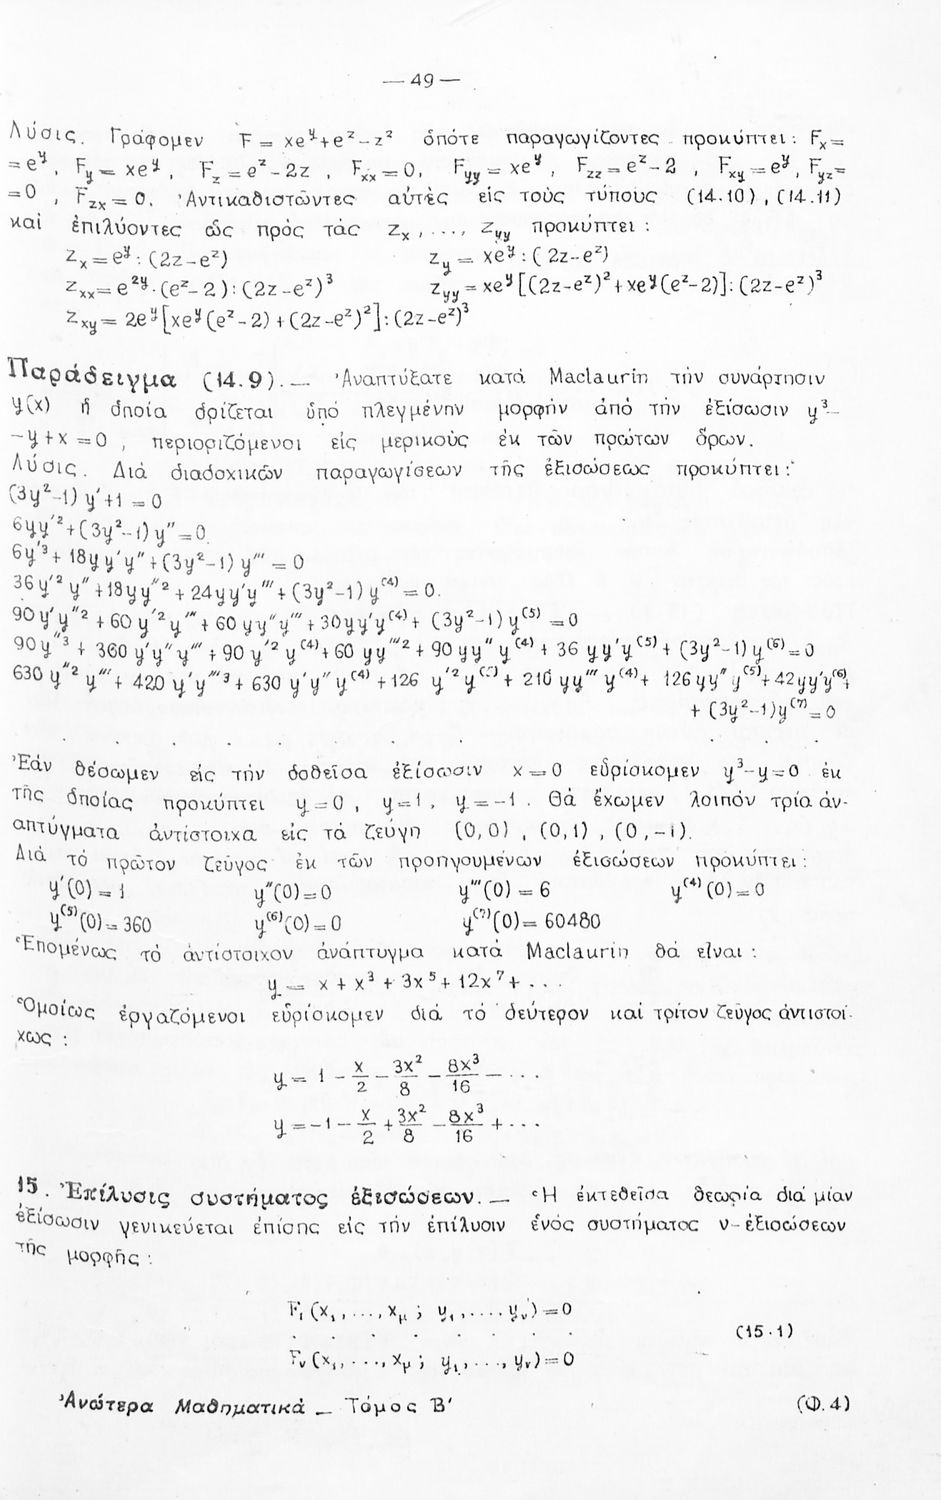 — 49 —
Λύσις. Γράφομεν F = xeʸ+eᶻ-z² ὁπότε παραγωγίζοντες προκύπτει: Fₓ=
=eʸ, F_y = xeʸ, F_z = eᶻ-2z, F_xx = 0, F_yy = xeʸ, F_zz = eᶻ-2, F_xy = eʸ, F_yz=
=0, F_zx = 0. Ἀντικαθιστῶντες αὐτὲς εἰς τοὺς τύπους (14.10), (14.11)
καὶ ἐπιλύοντες ὡς πρὸς τὰς z_x, ..., z_yy προκύπτει :
z_x = eʸ : (2z-eᶻ) z_y = xeʸ : (2z-eᶻ)
z_xx = e²ʸ·(eᶻ-2):(2z-eᶻ)³ z_yy = xeʸ[(2z-eᶻ)²+xeʸ(eᶻ-2)]:(2z-eᶻ)³
z_xy = 2eʸ[xeʸ(eᶻ-2)+(2z-eᶻ)²]:(2z-eᶻ)³
Παράδειγμα (14.9).— Ἀναπτύξατε κατὰ Maclaurin τὴν συνάρτησιν
y(x) ἡ ὁποία ὁρίζεται ὑπὸ πλεγμένην μορφὴν ἀπὸ τὴν ἐξίσωσιν y³-
-y+x=0, περιοριζόμενοι εἰς μερικοὺς ἐκ τῶν πρώτων ὅρων.
Λύσις. Διὰ διαδοχικῶν παραγωγίσεων τῆς ἐξισώσεως προκύπτει:
(3y²-1)y'+1 = 0
6yy'²+(3y²-1)y'' = 0.
6y'³+18yy'y''+(3y²-1)y''' = 0
36y'²y''+18yy''²+24yy'y'''+(3y²-1)y⁽⁴⁾ = 0.
90y'y''²+60y'²y'''+60yy''y'''+30yy'y⁽⁴⁾+(3y²-1)y⁽⁵⁾ = 0
90y''³+360y'y''y'''+90y'²y⁽⁴⁾+60yy'''²+90yy''y⁽⁴⁾+36yy'y⁽⁵⁾+(3y²-1)y⁽⁶⁾ = 0
630y''²y'''+420y'y'''³+630y'y''y⁽⁴⁾+126y'²y⁽⁵⁾+210yy'''y⁽⁴⁾+126yy''y⁽⁵⁾+42yy'y⁽⁶⁾+
+(3y²-1)y⁽⁷⁾ = 0
. . . . . . . . . . . .
Ἐὰν θέσωμεν εἰς τὴν δοθεῖσα ἐξίσωσιν x=0 εὑρίσκομεν y³-y=0 ἐκ
τῆς ὁποίας προκύπτει y=0, y=1, y=-1. Θὰ ἔχωμεν λοιπὸν τρία ἀν-
απτύγματα ἀντίστοιχα εἰς τὰ ζεύγη (0,0), (0,1), (0,-1).
Διὰ τὸ πρῶτον ζεῦγος ἐκ τῶν προηγουμένων ἐξισώσεων προκύπτει:
y'(0) = 1 y''(0) = 0 y'''(0) = 6 y⁽⁴⁾(0) = 0
y⁽⁵⁾(0) = 360 y⁽⁶⁾(0) = 0 y⁽⁷⁾(0) = 60480
Ἑπομένως τὸ ἀντίστοιχον ἀνάπτυγμα κατὰ Maclaurin θὰ εἶναι :
y = x + x³ + 3x⁵ + 12x⁷ + ...
Ὁμοίως ἐργαζόμενοι εὑρίσκομεν διὰ τὸ δεύτερον καὶ τρίτον ζεῦγος ἀντιστοί-
χως :
y = 1 - x/2 - 3x²/8 - 8x³/16 - ...
y = -1 - x/2 + 3x²/8 - 8x³/16 + ...
15. Ἐπίλυσις συστήματος ἐξισώσεων.— Ἡ ἐκτεθεῖσα θεωρία διὰ μίαν
ἐξίσωσιν γενικεύεται ἐπίσης εἰς τὴν ἐπίλυσιν ἑνὸς συστήματος ν-ἐξισώσεων
τῆς μορφῆς :
F₁(x₁, ..., x_μ ; y₁, ..., y_ν) = 0
. . . . . . . . (15.1)
F_ν(x₁, ..., x_μ ; y₁, ..., y_ν) = 0
Ἀνώτερα Μαθηματικά — Τόμος Β' (Φ.4)